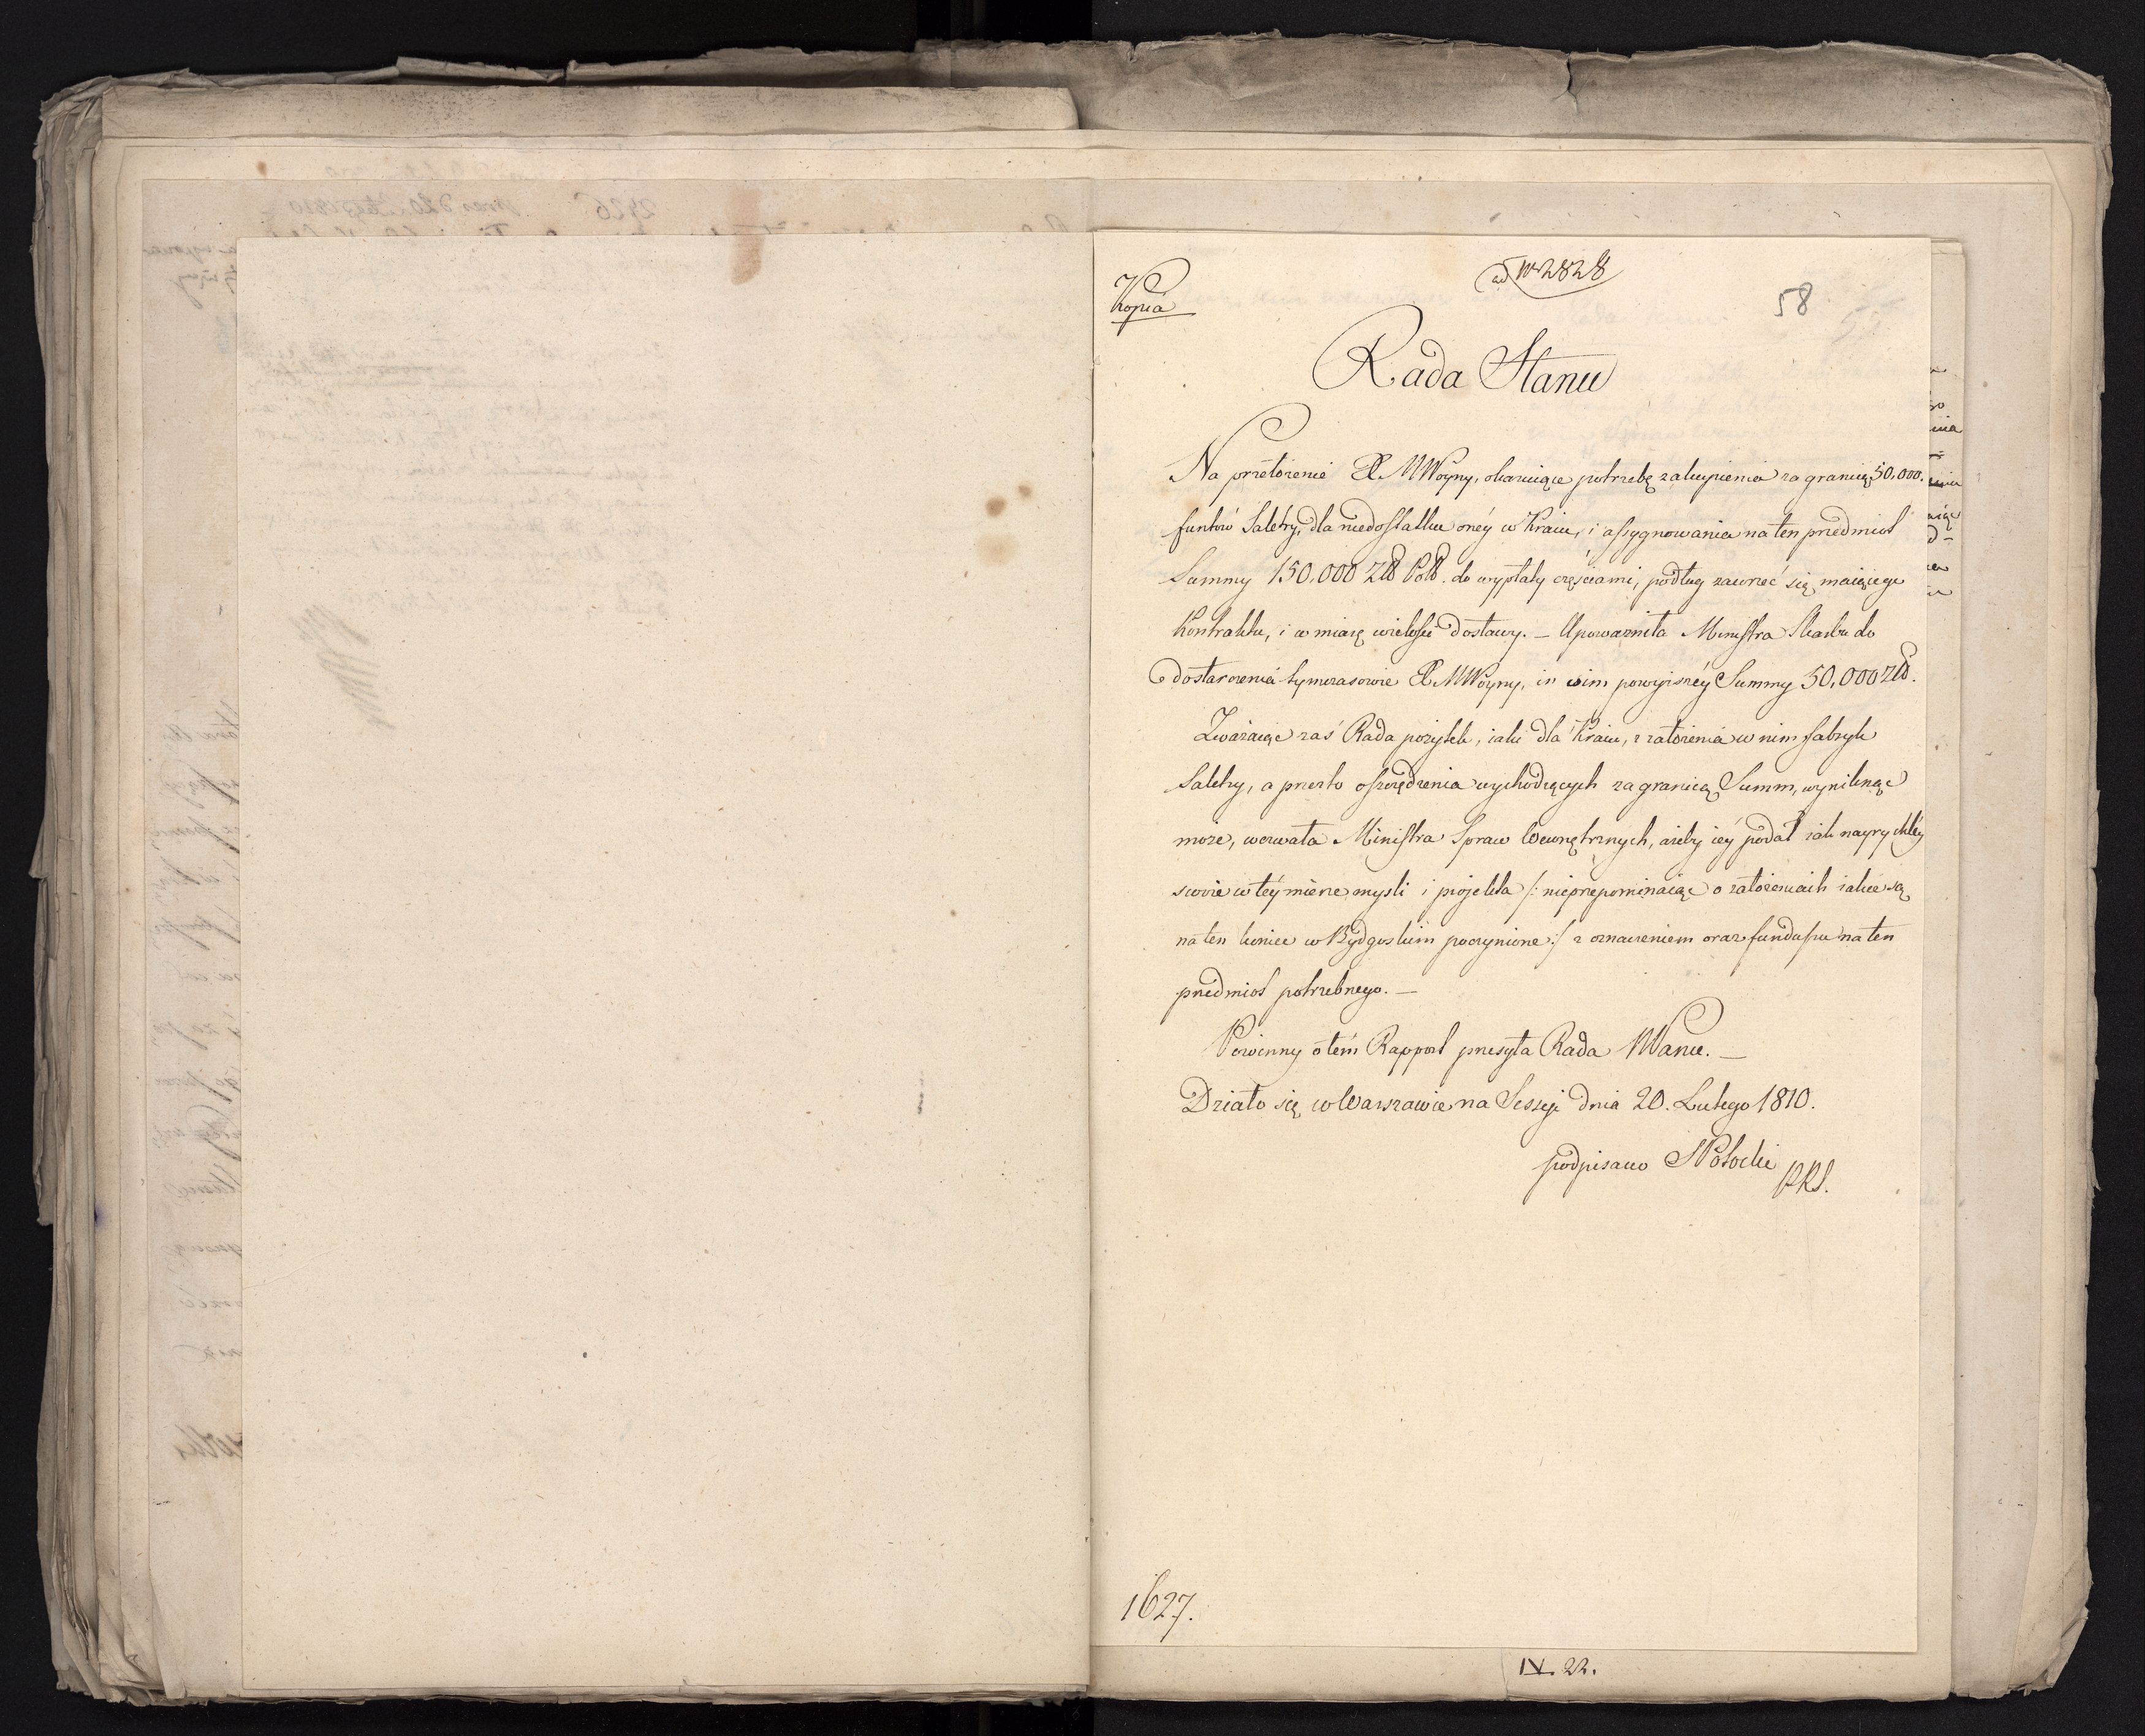 Kopia
ad Nr 2828
58
Rada Stanu
Na przełożenie M Woyny, okazuiące potrzebę zakupienia za granicą 50,000.
funtów Saletry, dla niedostatku onéy w Kraiu, i assygnowania na ten przedmiot
Summy 150,000 Złł Poll. do wypłaty częściami, podług zawrzeć się maiącego
Kontraktu, i w miarę wielości dostawy. – Upoważniła Ministra Skarbu do
dostarczenia tymczasowie M Woyny, in vim powyższéy Summy 50,000 Złł.
Zważaiąc zaś Rada pożytek, iaki dla Kraiu, z założenia w nim fabryk
Saletry, a przez to oszczędzenia wychodzących za granicę Summ, wyniknąć
może, wezwała Ministra Spraw Wewnętrznych, ażeby iéy podał iak nayrychléy
swoie w téy mierze mysli i projekta /: nieprzepominaiąc o założeniach iakie są
na ten koniec w Bydgoskim poczynione :/ z oznaczeniem oraz funduszu na ten
przedmiot potrzebnego. –
Powinny o tém Rapport przesyła Rada NPanu. –
Działo się w Warszawie na Sessyi dnia 20. Lutego 1810.
podpisano SPotocki
PRS.
1627.
IV. 22.